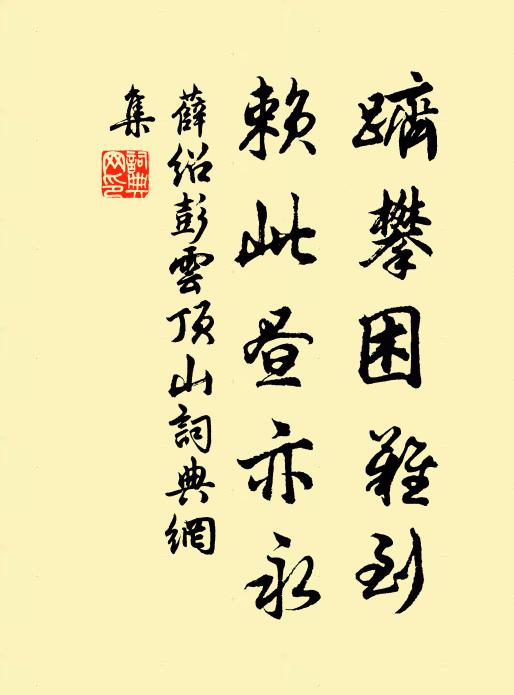 躋攀困難到
賴此晝亦永
薛紹彭雲頂山詞典網
集
詞典網印